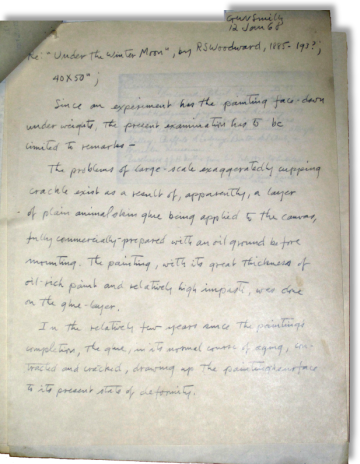 GWSmith
12 Jan 68
Re: "Under the Winter Moon", by RSWoodward, 1885-195?;
40X50";
Since an experiment has the painting face-down
under weights, the present examination has to be
limited to remarks -
The problems of large-scale exaggeratedly cupping
crackle exist as a result of, apparently, a layer
of plain animal skin glue being applied to the canvas,
fully commercially-prepared with an oil ground before
mounting. The painting, with its great thickness of
oil-rich paint and relatively high impasto, was done
on the glue-layer.
In the relatively few years since the paintings
completion, the glue, in its normal course of aging, con-
tracted and cracked, drawing up the painted surface
to its present state of deformity.